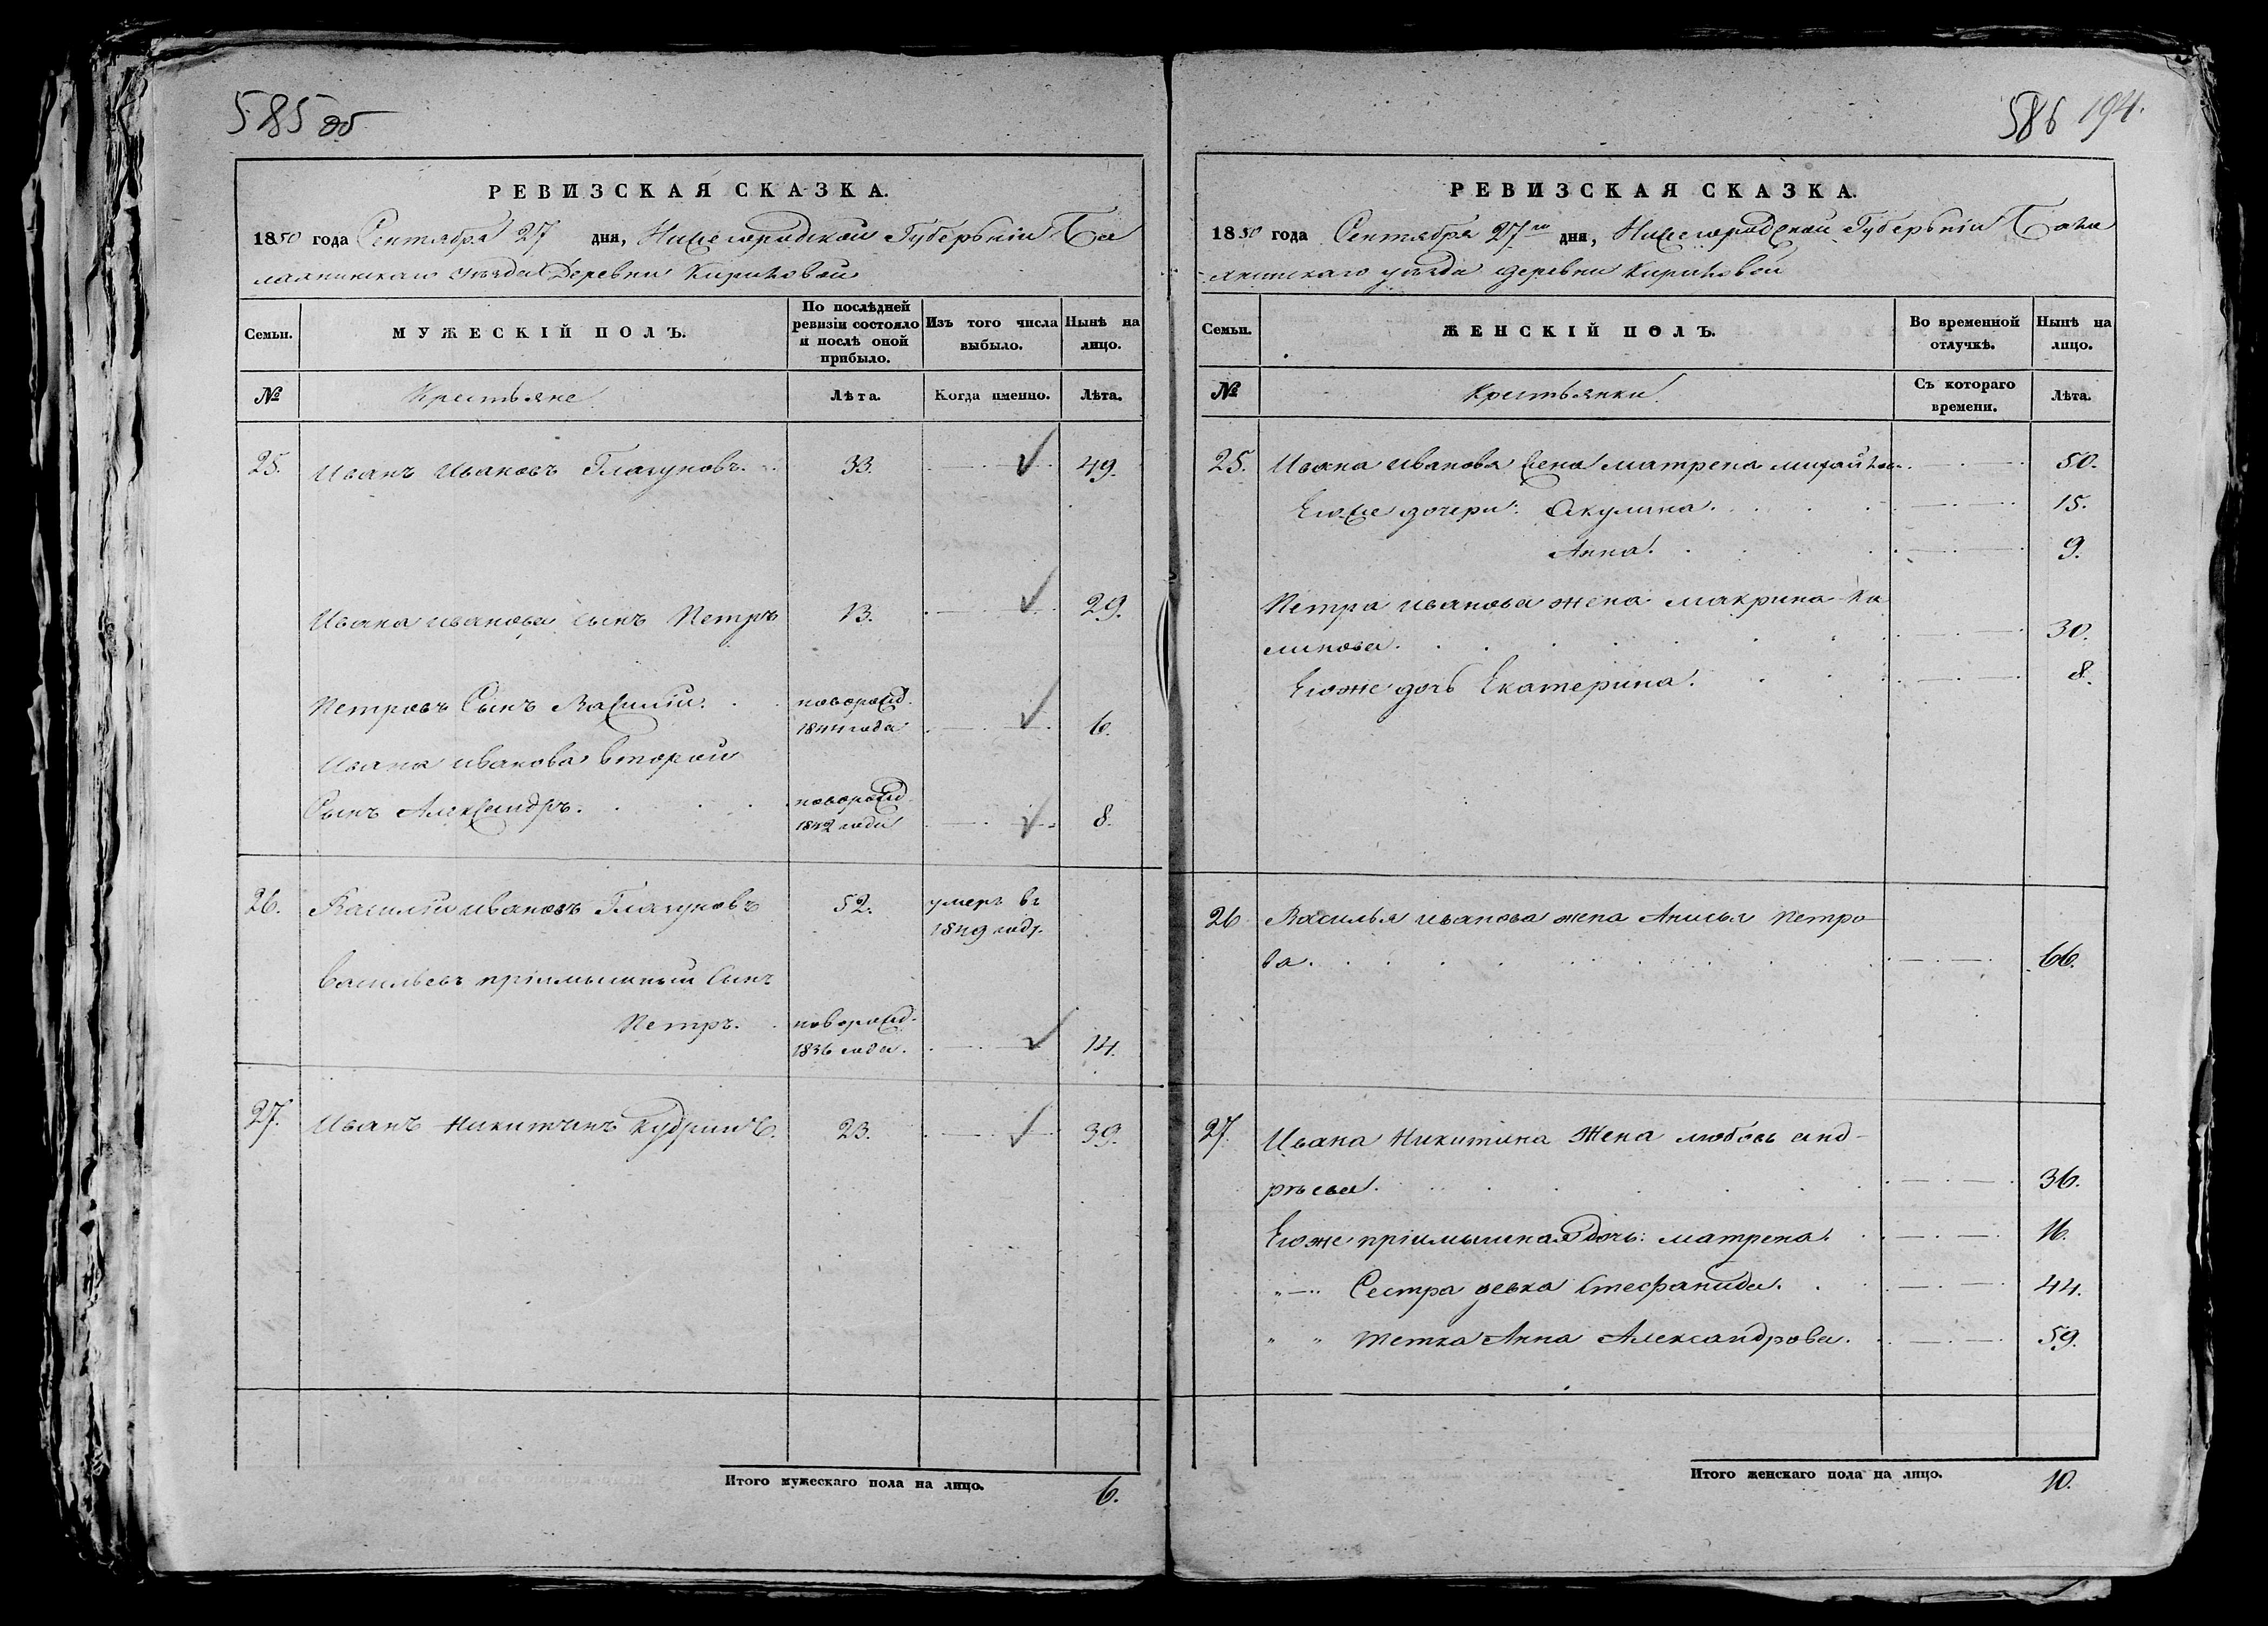 585 об
РЕВИЗСКАЯ СКАЗКА.
1850 года Сентября 27 дня, Нижегородской Губернiи Ба
лахнинскаго уѣзда Деревни Кириковой
Семьи.
МУЖЕСКІЙ ПОЛЪ.
По послѣдней ревизіи состояло и послѣ оной прибыло.
Изъ того числа выбыло.
Нынѣ на лицо.
№
Крестьяне
Лѣта.
Когда именно.
Лѣта.
25. Иванъ Ивановъ Глагуновъ. 33. 49.
Ивана Иванова сынъ Петръ 13. 29.
Петровъ Сынъ Василiй. новорожд.
1844 года 6.
Ивана Иванова второй
Сынъ Александръ. новорожд.
1842 года 8.
26. Василiй Ивановъ Глагуновъ 52. умеръ въ
1849 году.
Васильевъ прiимышный Сынъ
Петръ. новорожд.
1836 года. 14.
27. Иванъ Никитинъ 23. 39.
Итого мужескаго пола на лицо. 6.
586 194.
РЕВИЗСКАЯ СКАЗКА.
1850 года Сентября 27го дня, Нижегородской Губернiи Бала
хнинскаго уѣзда деревни Кириковой
Семьи.
ЖЕНСКІЙ ПОЛЪ.
Во временной отлучкѣ.
Нынѣ на лицо.
№
Крестьянки
Съ котораго времени.
Лѣта.
25. Ивана Иванова жена Матрена Михайлова. 50.
Егоже дочери: Акулина. 15.
Анна. 9.
Петра Иванова жена Макрина Ка
линова. 30.
Егоже дочь Екатерина. 8.
26 Василья Иванова жена Анисья Петро-
ва. 66.
27. Ивана Никитина Жена Любовь Анд-
рѣева. 36.
Егоже прiимышная дочь: Матрена. 16.
"—" Сестра девка Стефанида. 44.
" " Тетка Анна Александрова. 59.
Итого женскаго пола на лицо. 10.